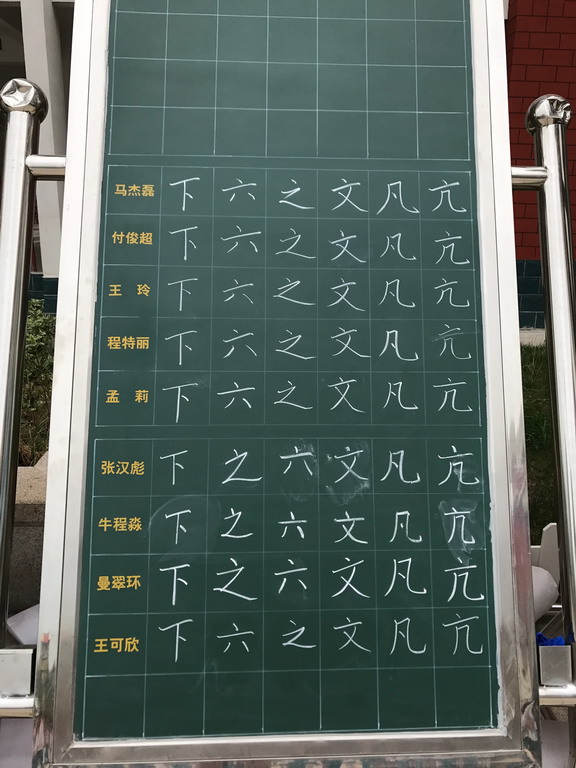 马杰磊 下 六 之 文 凡 亢
付俊超 下 六 之 文 凡 亢
王 玲 下 六 之 文 凡 亢
程特丽 下 六 之 文 凡 亢
孟 莉 下 六 之 文 凡 亢
张汉彪 下 之 六 文 凡 亢
牛程淼 下 之 六 文 凡 亢
曼翠环 下 之 六 文 凡 亢
王可欣 下 六 之 文 凡 亢